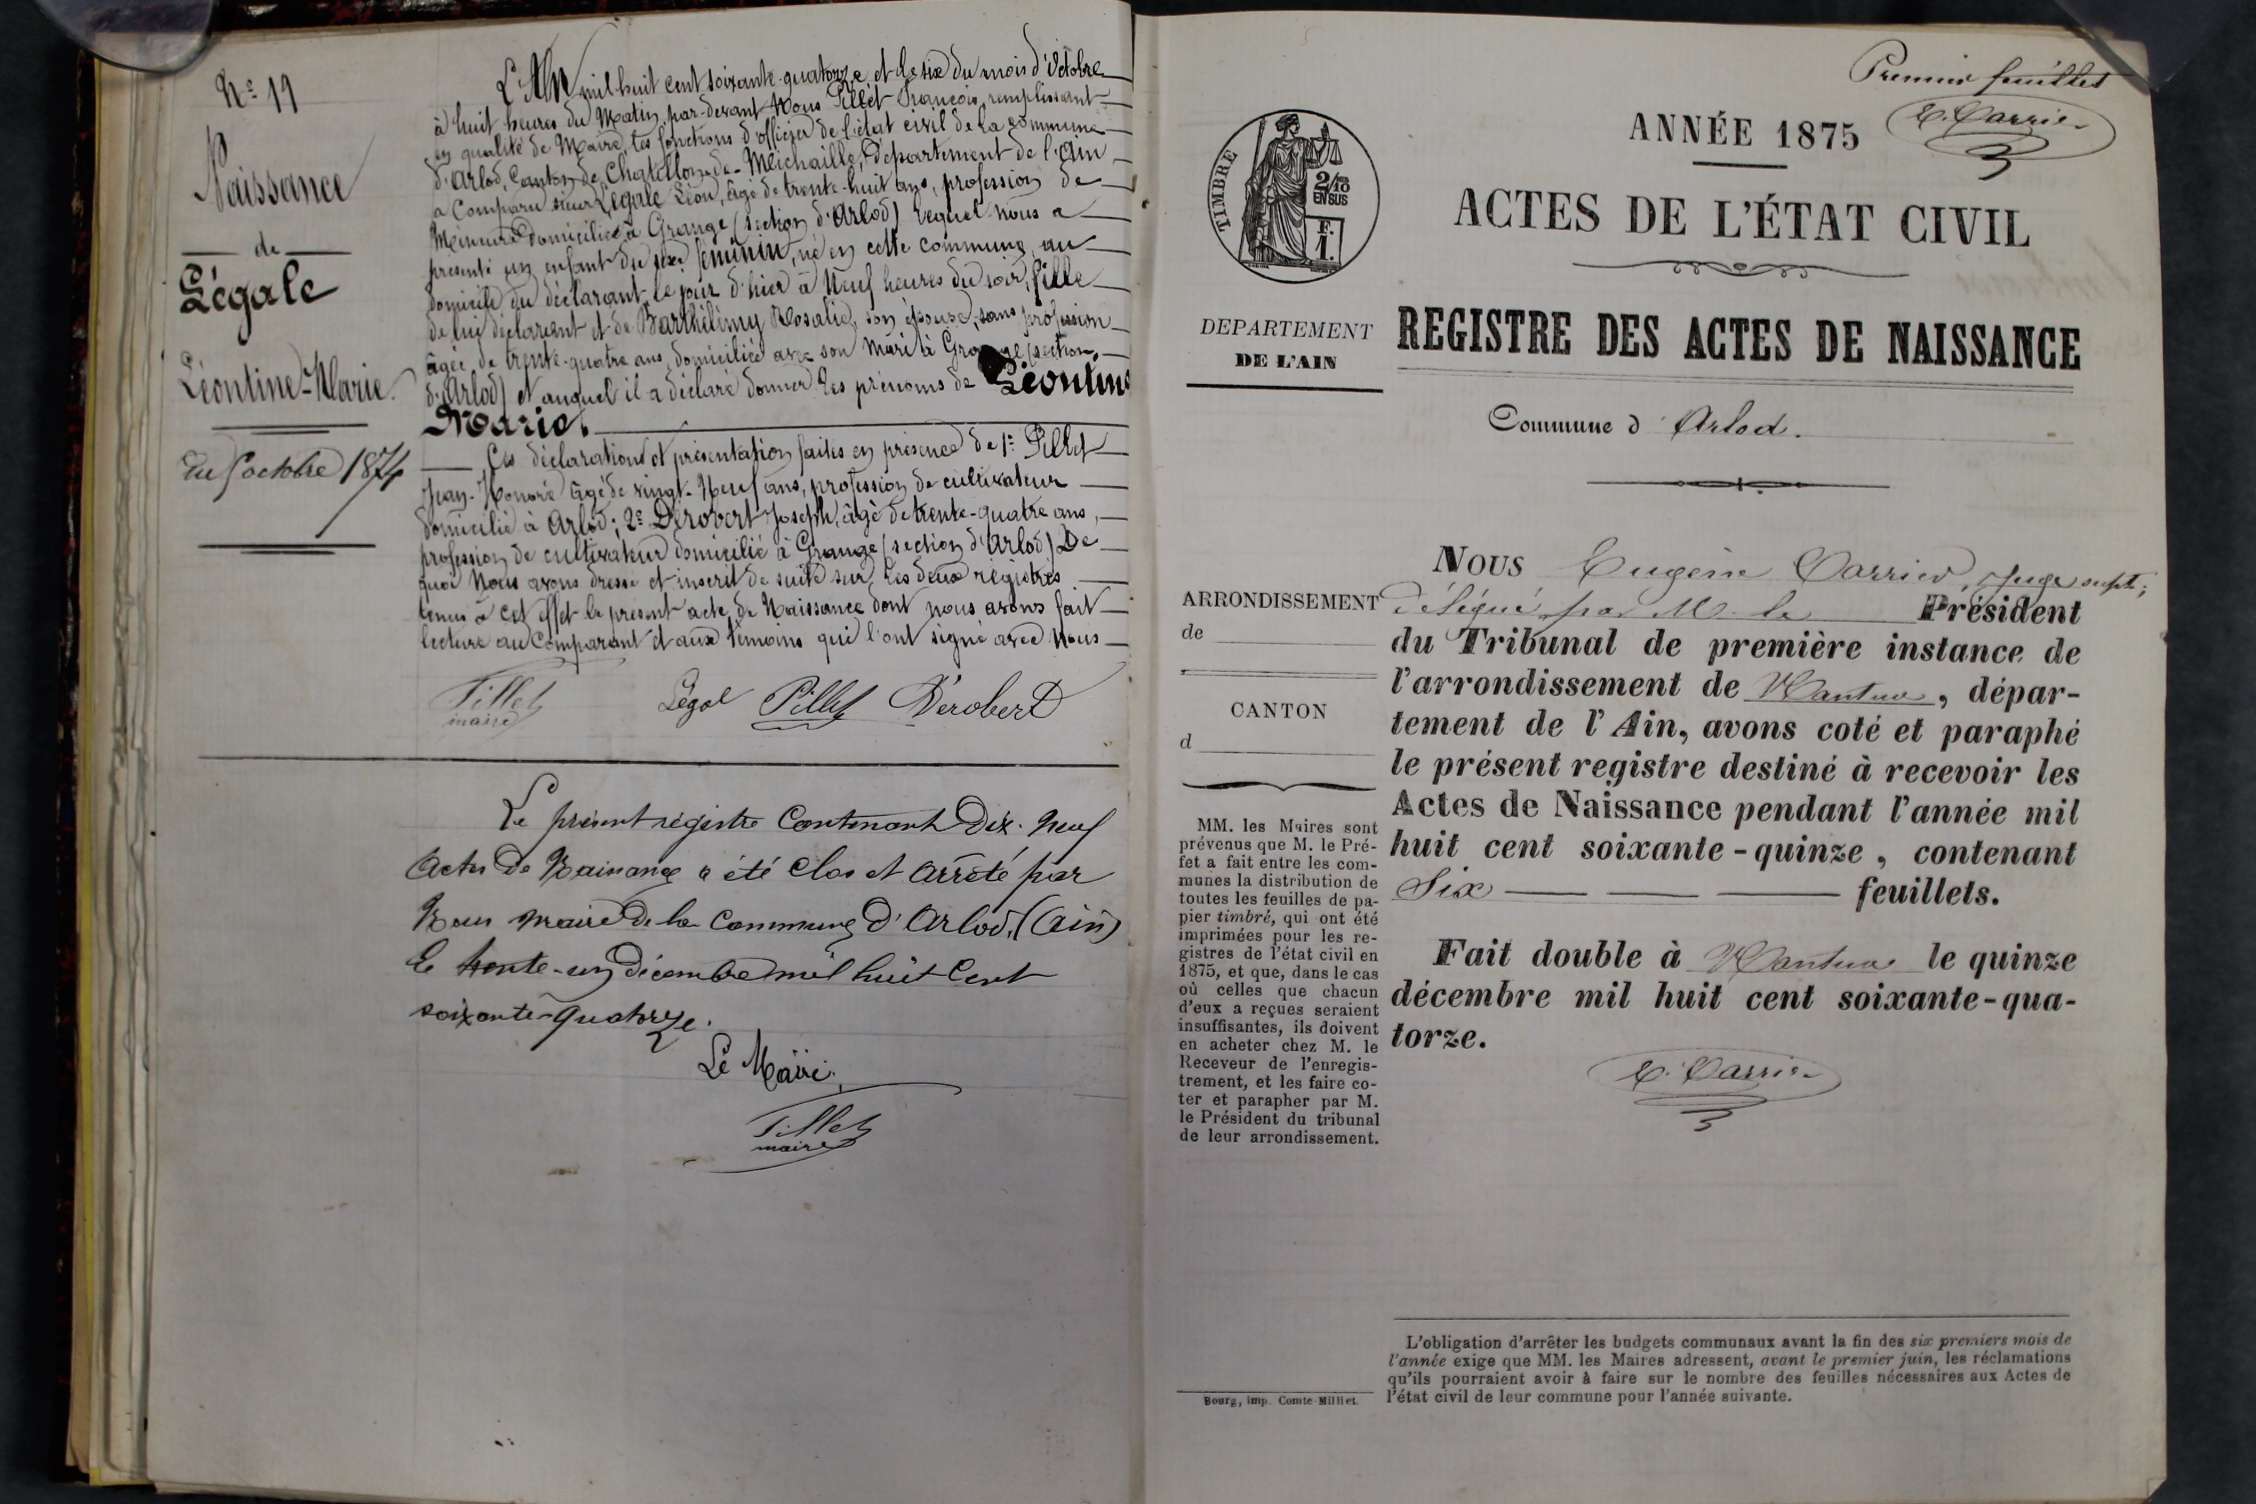 Nº 19
Naissance
de
Légale
Léontine-Marie.
du 5 octobre 1874
L'AN mil huit cent soixante-quatorze et le six du mois d'Octobre
à huit heures du Matin, par-devant Nous Pillet François, remplissant
en qualité de Maire, les fonctions d'officier de l'état civil de la commune
d'Arlod, Canton de Chatillon-de-Michaille, Département de l'Ain
a Comparu sieur Légale Léon, âgé de trente-huit ans, profession de
Mineur domicilié à Grange (section d'Arlod) lequel nous a
présenté un enfant du sexe féminin, né en cette commune, au
domicile du déclarant, le jour d'hier à Neuf heures du soir, fille
de lui déclarant et de Barthélémy Rosalie, son épouse, sans profession
âgée de trente-quatre ans, domiciliée avec son Mari à Grange (section
d'Arlod) et auquel il a déclaré donner les prénoms de Léontine
Marie.
Ces déclarations et présentation faites en présence de 1º Pillet
Jean-Honoré âgé de vingt-Neuf ans, profession de cultivateur
domicilié à Arlod; 2º Dérobert Joseph, âgé de trente-quatre ans,
profession de cultivateur domicilié à Grange (section d'Arlod) De
quoi Nous avons dressé et inscrit de suite sur les deux registres
tenus à cet effet le présent acte de Naissance dont nous avons fait
lecture au Comparant et aux témoins qui l'ont signé avec Nous
Pillet
maire
Légal Pillet Dérobert
Le présent registre Contenant Dix-Neuf
Actes de Naissance a été Clos et Arrêté par
Nous Maire de la Commune d'Arlod, (Ain)
le trente-un décembre mil huit Cent
soixante-quatorze.
Le Maire.
Pillet
maire
Premier feuillet
E. Carrier
ANNÉE 1875
TIMBRE
2/10 EN SUS
F. 1.
ACTES DE L'ÉTAT CIVIL
DEPARTEMENT
DE L'AIN
REGISTRE DES ACTES DE NAISSANCE
Commune d'Arlod.
ARRONDISSEMENT
de
CANTON
d
MM. les Maires sont
prévenus que M. le Pré-
fet a fait entre les com-
munes la distribution de
toutes les feuilles de pa-
pier timbré, qui ont été
imprimées pour les re-
gistres de l'état civil en
1875, et que, dans le cas
où celles que chacun
d'eux a reçues seraient
insuffisantes, ils doivent
en acheter chez M. le
Receveur de l'enregis-
trement, et les faire co-
ter et parapher par M.
le Président du tribunal
de leur arrondissement.
Bourg, imp. Comte-Milliet.
NOUS Eugène Carrier, Juge suplt;
délégué par M. le Président
du Tribunal de première instance de
l'arrondissement de Nantua, dépar-
tement de l'Ain, avons coté et paraphé
le présent registre destiné à recevoir les
Actes de Naissance pendant l'année mil
huit cent soixante-quinze, contenant
Six feuillets.
Fait double à Nantua le quinze
décembre mil huit cent soixante-qua-
torze.
E. Carrier
L'obligation d'arrêter les budgets communaux avant la fin des six premiers mois de
l'année exige que MM. les Maires adressent, avant le premier juin, les réclamations
qu'ils pourraient avoir à faire sur le nombre des feuilles nécessaires aux Actes de
l'état civil de leur commune pour l'année suivante.